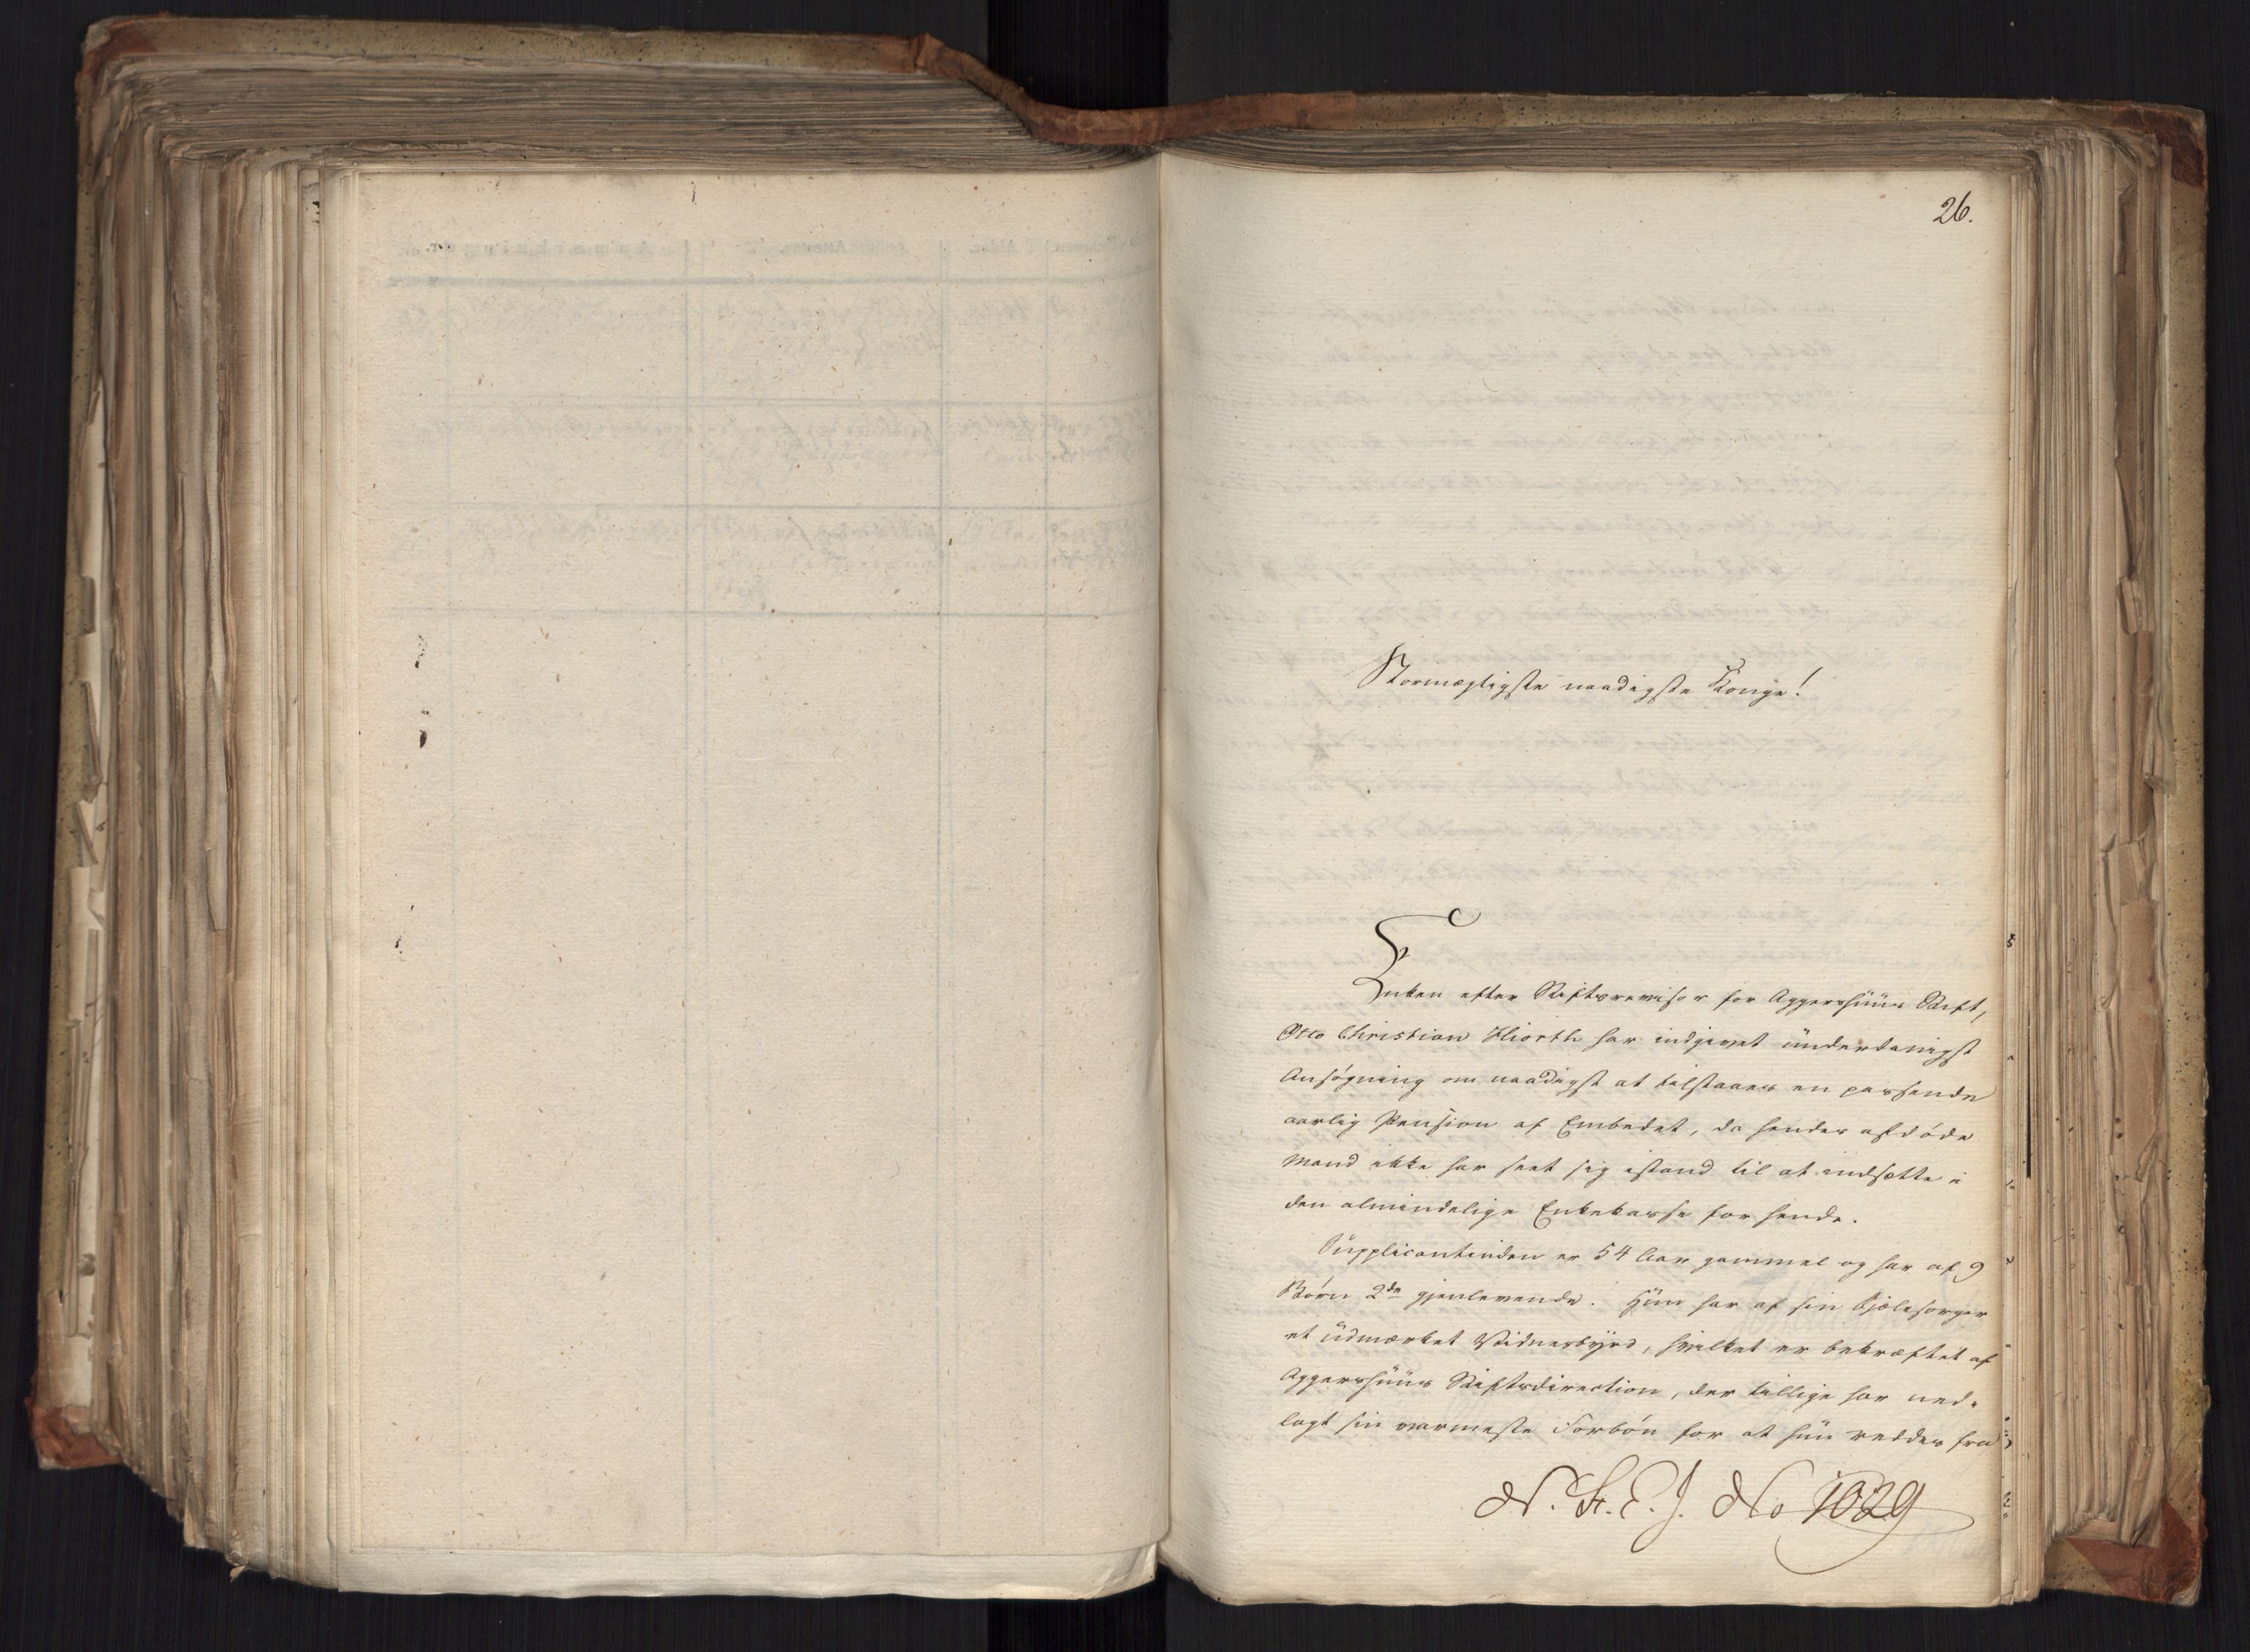 26.
Stormægtigste naadigste Konge!
Enken efter Stiftsrevisor for Aggershüüs Stift,
Otto Christian Hiorth har indgivet ünderdanigst
Ansøgning om naadigst at tilstaaes en passende
aarlig Pension af Embedet, da hendes afdøde
Mand ikke har seet sig istand til at indsætte i
den almindelige Enkekasse for hende.
Süpplicantinden er 54 Aar gammel og har af 9
Børn 2de gjenlevende. Hün har af sin Sjælesørger
et üdmærket Vidnesbyrd, hvilket er bekræftet af
Aggershüüs Stiftsdirection, der tillige har ned-
lagt sin varmeste Forbøn for at hün reddes fra
No 1029